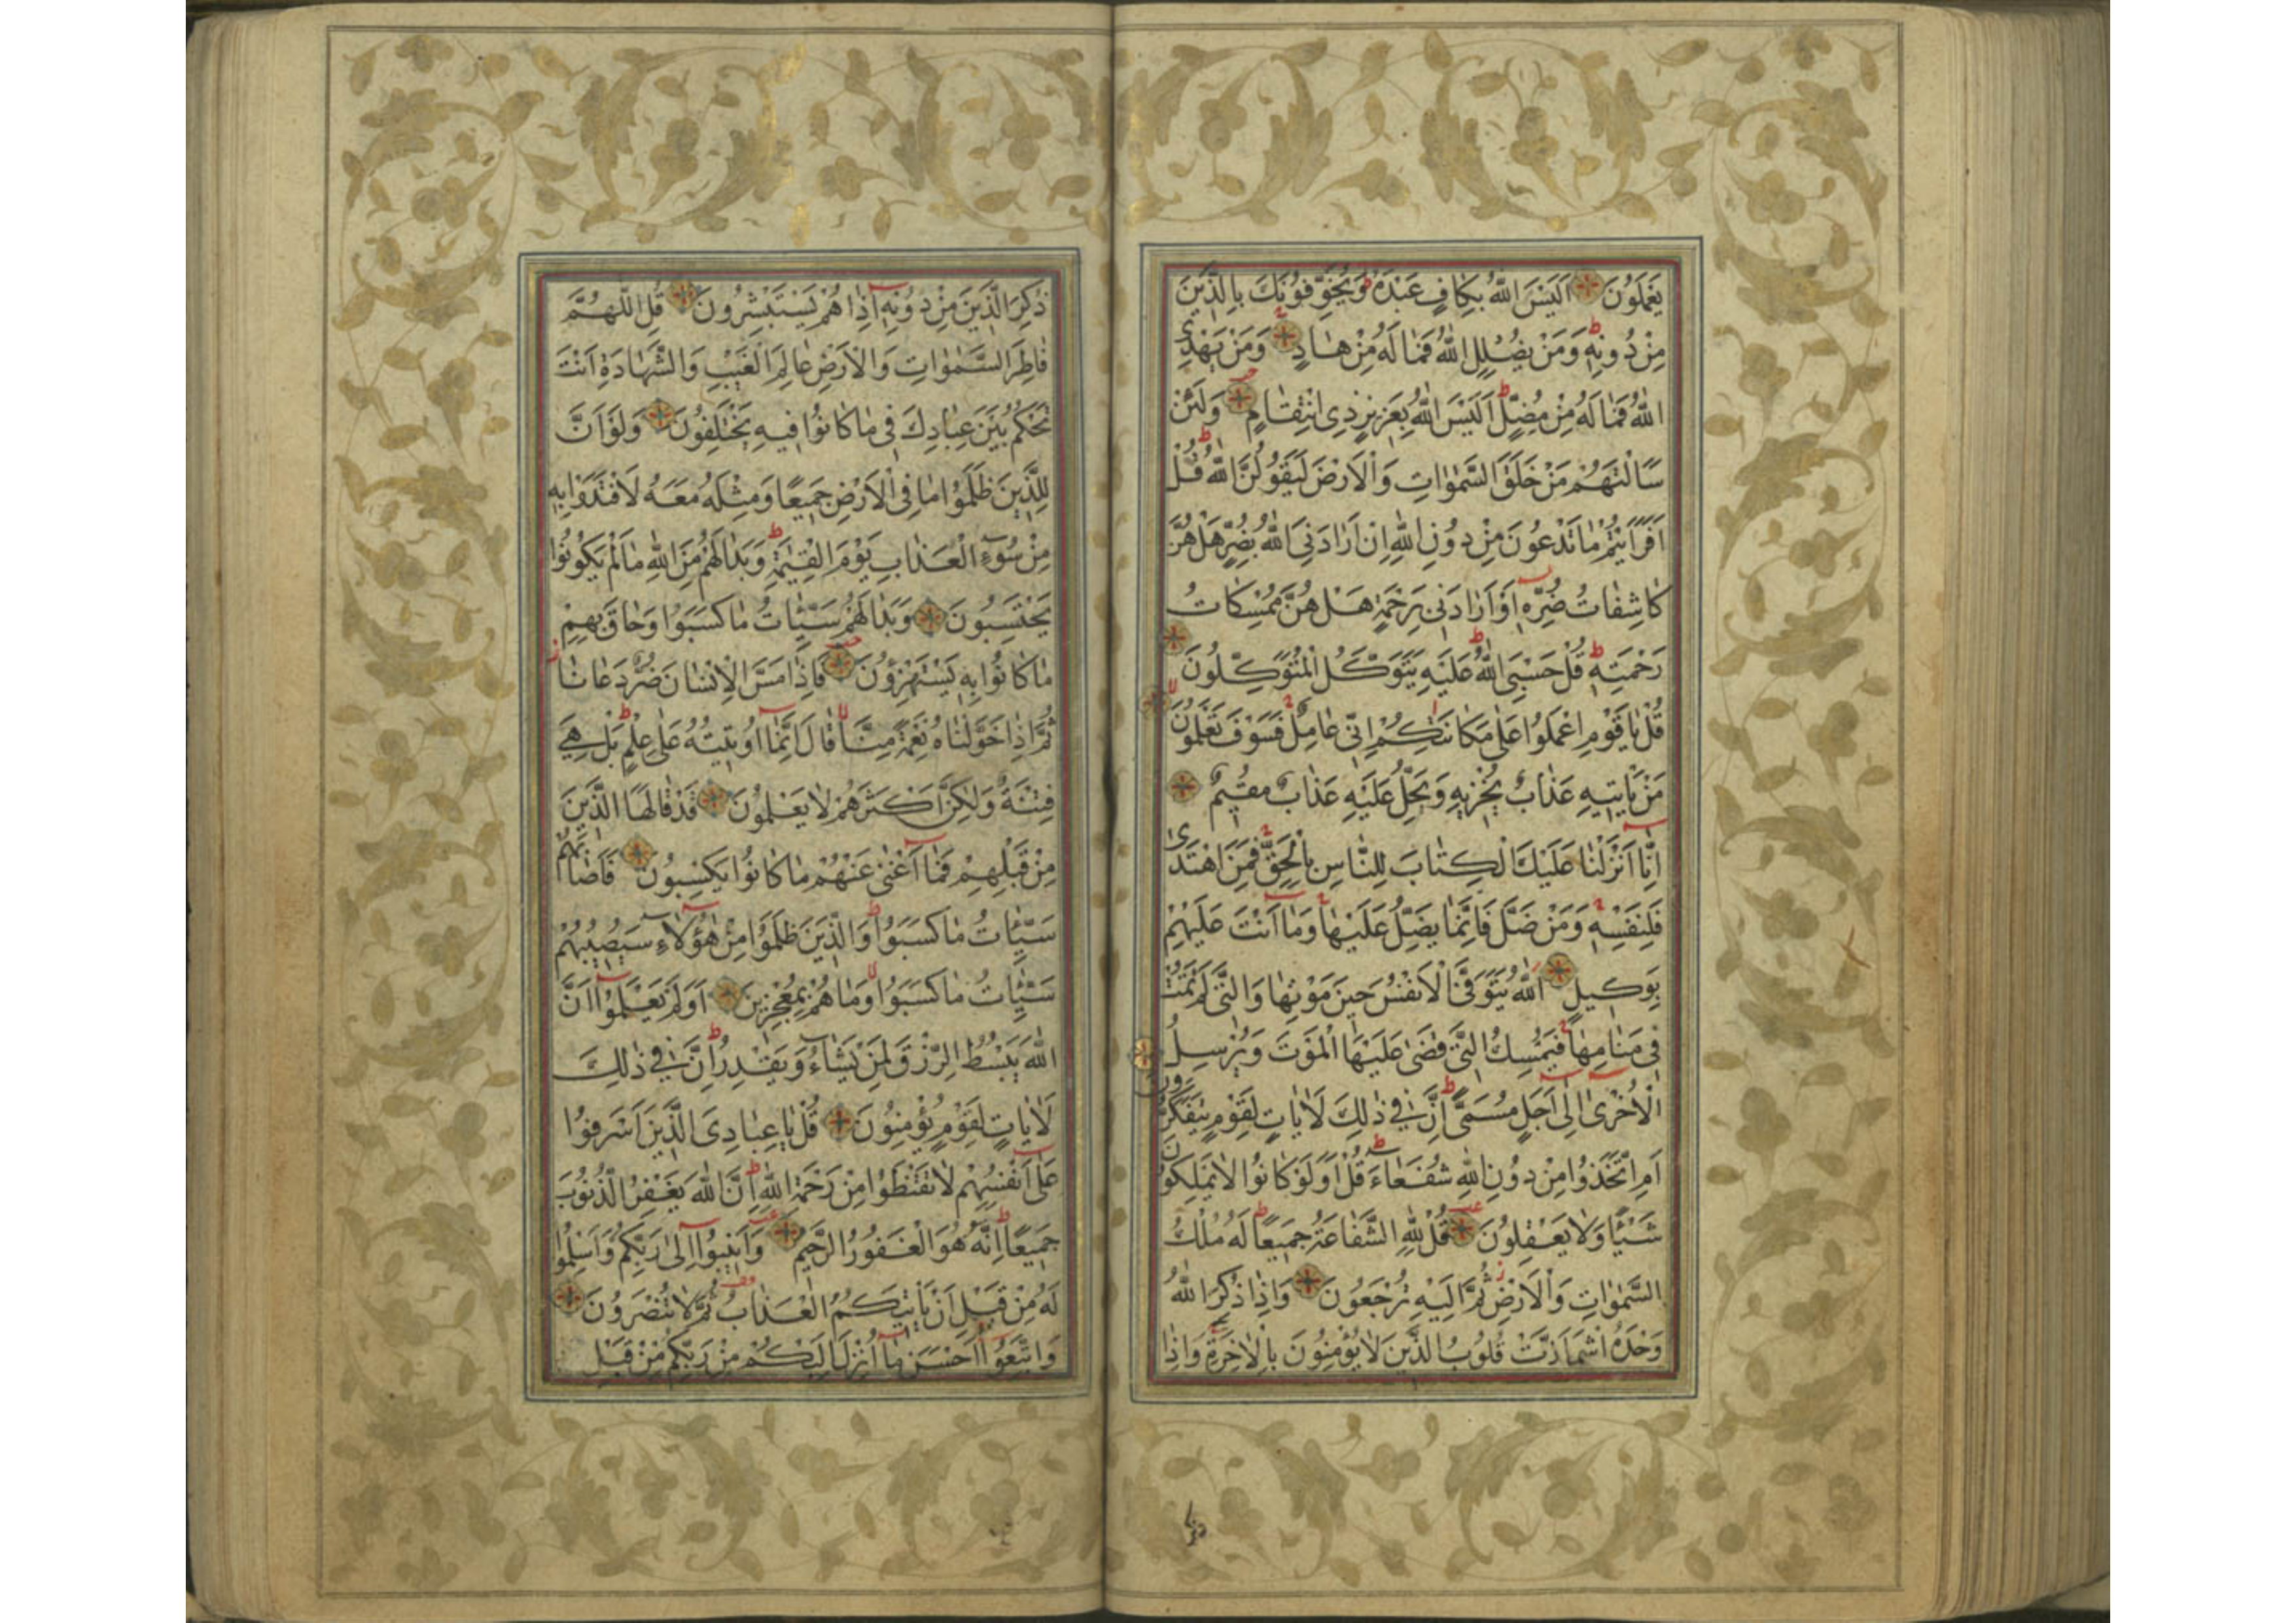 يَعْمَلُونَ اَلَيْسَ اللّٰهُ بِكَافٍ عَبْدَهُ وَيُخَوِّفُونَكَ بِالَّذِينَ
مِنْ دُونِهِ وَمَنْ يُضْلِلِ اللّٰهُ فَمَا لَهُ مِنْ هَادٍ وَمَنْ يَهْدِي
اللّٰهُ فَمَا لَهُ مِنْ مُضِلٍّ اَلَيْسَ اللّٰهُ بِعَزِيزٍ ذِي انْتِقَامٍ وَلَئِنْ
سَاَلْتَهُمْ مَنْ خَلَقَ السَّمٰوَاتِ وَالْاَرْضَ لَيَقُولُنَّ اللّٰهُ قُلْ
اَفَرَاَيْتُمْ مَا تَدْعُونَ مِنْ دُونِ اللّٰهِ اِنْ اَرَادَنِيَ اللّٰهُ بِضُرٍّ هَلْ هُنَّ
كَاشِفَاتُ ضُرِّهِ اَوْ اَرَادَنِي بِرَحْمَةٍ هَلْ هُنَّ مُمْسِكَاتُ
رَحْمَتِهِ قُلْ حَسْبِيَ اللّٰهُ عَلَيْهِ يَتَوَكَّلُ الْمُتَوَكِّلُونَ
قُلْ يَا قَوْمِ اعْمَلُوا عَلٰى مَكَانَتِكُمْ اِنِّي عَامِلٌ فَسَوْفَ تَعْلَمُونَ
مَنْ يَأْتِيهِ عَذَابٌ يُخْزِيهِ وَيَحِلُّ عَلَيْهِ عَذَابٌ مُقِيمٌ
اِنَّا اَنْزَلْنَا عَلَيْكَ الْكِتَابَ لِلنَّاسِ بِالْحَقِّ فَمَنِ اهْتَدٰى
فَلِنَفْسِهِ وَمَنْ ضَلَّ فَاِنَّمَا يَضِلُّ عَلَيْهَا وَمَا اَنْتَ عَلَيْهِمْ
بِوَكِيلٍ اَللّٰهُ يَتَوَفَّى الْاَنْفُسَ حِينَ مَوْتِهَا وَالَّتِي لَمْ تَمُتْ
فِي مَنَامِهَا فَيُمْسِكُ الَّتِي قَضٰى عَلَيْهَا الْمَوْتَ وَيُرْسِلُ
الْاُخْرٰى اِلٰى اَجَلٍ مُسَمًّى اِنَّ فِي ذٰلِكَ لَاٰيَاتٍ لِقَوْمٍ يَتَفَكَّرُونَ
اَمِ اتَّخَذُوا مِنْ دُونِ اللّٰهِ شُفَعَاءَ قُلْ اَوَلَوْ كَانُوا لَا يَمْلِكُونَ
شَيْئًا وَلَا يَعْقِلُونَ قُلْ لِلّٰهِ الشَّفَاعَةُ جَمِيعًا لَهُ مُلْكُ
السَّمٰوَاتِ وَالْاَرْضِ ثُمَّ اِلَيْهِ تُرْجَعُونَ وَاِذَا ذُكِرَ اللّٰهُ
وَحْدَهُ اشْمَاَزَّتْ قُلُوبُ الَّذِينَ لَا يُؤْمِنُونَ بِالْاٰخِرَةِ وَاِذَا
ذُكِرَ الَّذِينَ مِنْ دُونِهِ اِذَا هُمْ يَسْتَبْشِرُونَ قُلِ اللّٰهُمَّ
فَاطِرَ السَّمٰوَاتِ وَالْاَرْضِ عَالِمَ الْغَيْبِ وَالشَّهَادَةِ اَنْتَ
تَحْكُمُ بَيْنَ عِبَادِكَ فِي مَا كَانُوا فِيهِ يَخْتَلِفُونَ وَلَوْ اَنَّ
لِلَّذِينَ ظَلَمُوا مَا فِي الْاَرْضِ جَمِيعًا وَمِثْلَهُ مَعَهُ لَافْتَدَوْا بِهِ
مِنْ سُوءِ الْعَذَابِ يَوْمَ الْقِيٰمَةِ وَبَدَا لَهُمْ مِنَ اللّٰهِ مَا لَمْ يَكُونُوا
يَحْتَسِبُونَ وَبَدَا لَهُمْ سَيِّئَاتُ مَا كَسَبُوا وَحَاقَ بِهِمْ
مَا كَانُوا بِهِ يَسْتَهْزِؤُنَ فَاِذَا مَسَّ الْاِنْسَانَ ضُرٌّ دَعَانَا
ثُمَّ اِذَا خَوَّلْنَاهُ نِعْمَةً مِنَّا قَالَ اِنَّمَا اُوتِيتُهُ عَلٰى عِلْمٍ بَلْ هِيَ
فِتْنَةٌ وَلٰكِنَّ اَكْثَرَهُمْ لَا يَعْلَمُونَ قَدْ قَالَهَا الَّذِينَ
مِنْ قَبْلِهِمْ فَمَا اَغْنٰى عَنْهُمْ مَا كَانُوا يَكْسِبُونَ فَاَصَابَهُمْ
سَيِّئَاتُ مَا كَسَبُوا وَالَّذِينَ ظَلَمُوا مِنْ هٰؤُلَاءِ سَيُصِيبُهُمْ
سَيِّئَاتُ مَا كَسَبُوا وَمَا هُمْ بِمُعْجِزِينَ اَوَلَمْ يَعْلَمُوا اَنَّ
اللّٰهَ يَبْسُطُ الرِّزْقَ لِمَنْ يَشَاءُ وَيَقْدِرُ اِنَّ فِي ذٰلِكَ
لَاٰيَاتٍ لِقَوْمٍ يُؤْمِنُونَ قُلْ يَا عِبَادِيَ الَّذِينَ اَسْرَفُوا
عَلٰى اَنْفُسِهِمْ لَا تَقْنَطُوا مِنْ رَحْمَةِ اللّٰهِ اِنَّ اللّٰهَ يَغْفِرُ الذُّنُوبَ
جَمِيعًا اِنَّهُ هُوَ الْغَفُورُ الرَّحِيمُ وَاَنِيبُوا اِلٰى رَبِّكُمْ وَاَسْلِمُوا
لَهُ مِنْ قَبْلِ اَنْ يَأْتِيَكُمُ الْعَذَابُ ثُمَّ لَا تُنْصَرُونَ
وَاتَّبِعُوا اَحْسَنَ مَا اُنْزِلَ اِلَيْكُمْ مِنْ رَبِّكُمْ مِنْ قَبْلِ